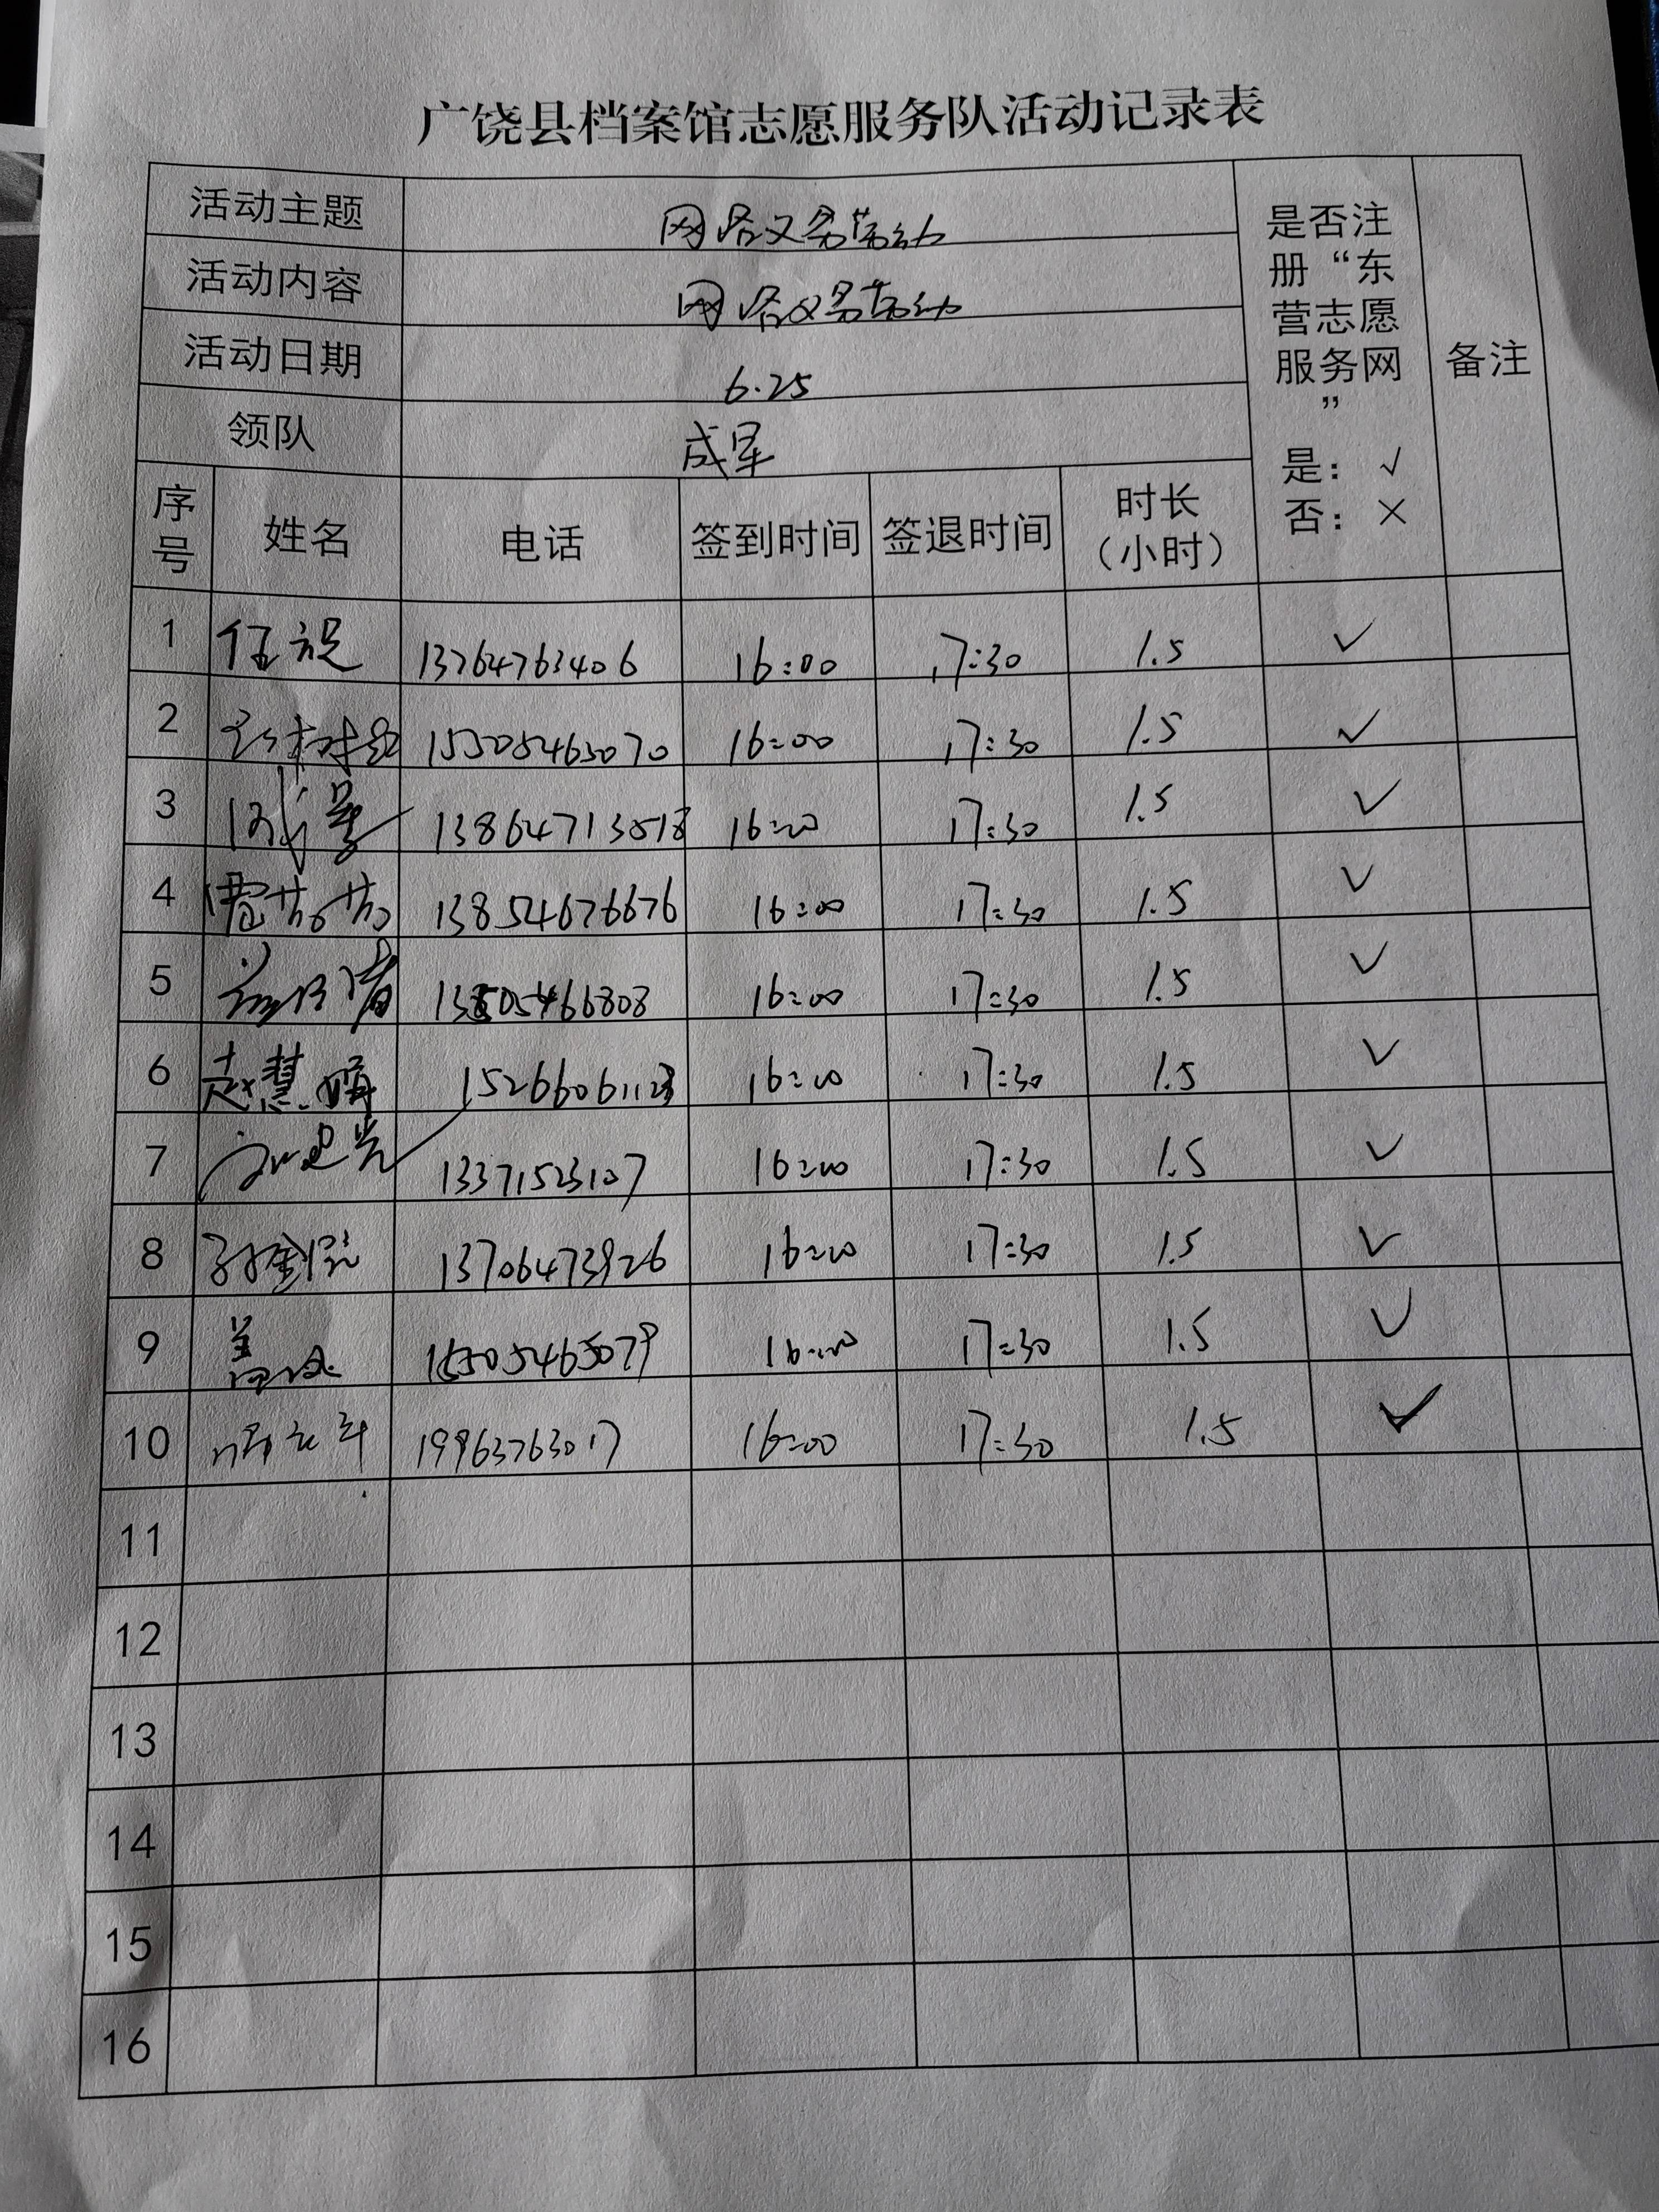 广饶县档案馆志愿服务队活动记录表
活动主题 网格义务劳动
活动内容 网格义务劳动
活动日期 6.25
领队 成军
是否注册“东营志愿服务网”
是：√
否：×
备注
序号 姓名 电话 签到时间 签退时间 时长（小时）
1 13764763406 16:00 17:30 1.5 ✓
2 15505465070 16:00 17:30 1.5 ✓
3 16:00 17:30 1.5 ✓
4 13854676676 16:00 17:30 1.5 ✓
5 13805466808 16:00 17:30 1.5 ✓
6 赵慧 16:00 17:30 1.5 ✓
7 13371523107 16:00 17:30 1.5 ✓
8 13706473926 16:00 17:30 1.5 ✓
9 15505465079 16:00 17:30 1.5 ✓
10 19963763017 16:00 17:30 1.5 ✓
11
12
13
14
15
16